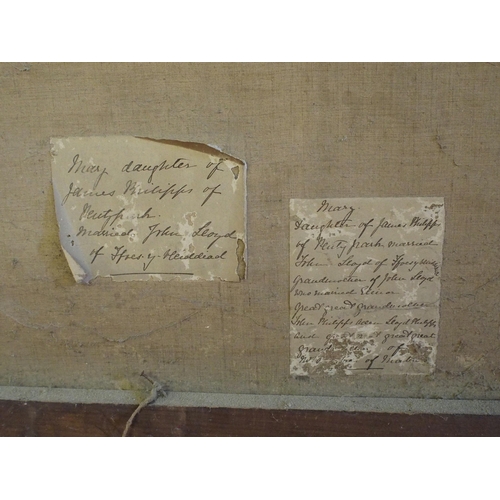 Mary daughter of
James Philipps of
Penty park.
married John Lloyd
of Ffoes-y-bleiddiad
Mary
Daughter of James Philipps
of Penty park married
John Lloyd of
Grandmother of John Lloyd
who married
great great grandmother
John Philipps Lloyd Philipps
and great great
grandmother of
of